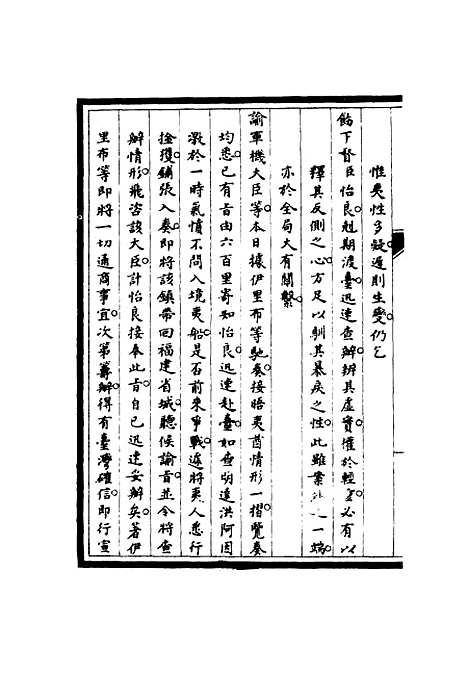 惟夷性多疑遲則生變仍乞
飭下督臣怡良尅期渡臺迅速查辦辨其虛實權於輕重必有以
釋其反側之心方足以馴其暴戾之性此雖案外之一端
亦於全局大有關繫
諭軍機大臣等本日據伊里布等馳奏接晤夷酋情形一摺覽奏
均悉已有旨由六百里寄知怡良迅速赴臺如查明達洪阿因
激於一時氣憤不問入境夷船是否前來爭戰遂將夷人悉行
拴獲鋪張入奏即將該鎮帶回福建省城聽候諭旨並令將查
辦情形飛咨該大臣計怡良接奉此旨自已迅速妥辦矣著伊
里布等即將一切通商事宜次第籌辦得有臺灣確信即行宣